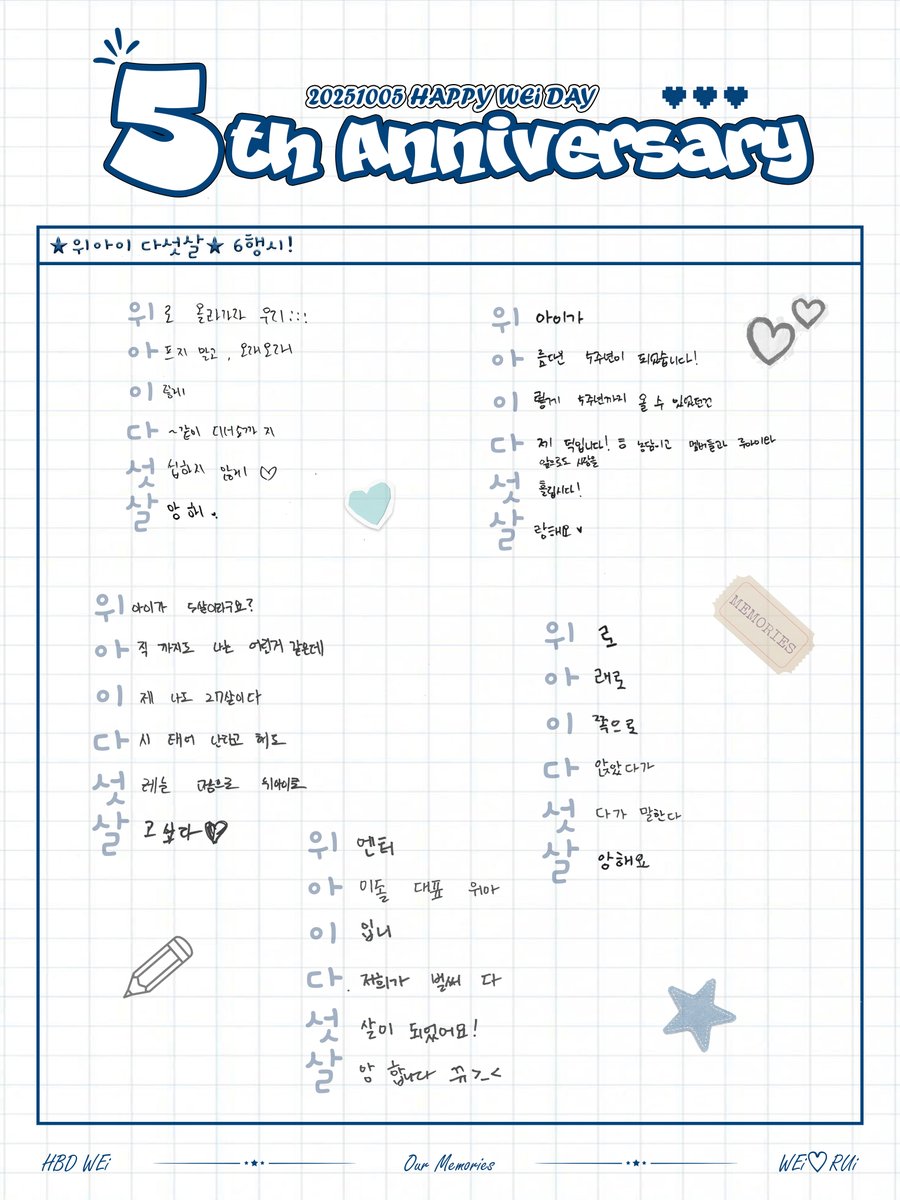 20251005 HAPPY WEi DAY
5th Anniversary
★위아이 다섯살★ 6행시!
위로 올라가라 우리:::
아프지 말고, 오래오래
이렇게
다~같이 다섯살까지
섯섭하지 않게 ♡
살앙해.
위 아이가
아름다운 5주년이 되었습니다!
이렇게 5주년까지 올 수 있었던건
다 제 덕입니다! 는 농담이고 멤버들과 루아이라
앞으로도 사랑을
섯 흘립시다!
살랑해요 ♥
위아이가 5살이라구요?
아직 까지도 나는 어린거 같은데
이제 나도 27살이다
다시 태어 난다고 해도
섯레는 마음으로 위아이로
살고 싶다♡
위로
아래로
이쪽으로
다 앉았다가
섯다가 말한다
살앙해요
위엔터
아이돌 대표 위아
이입니
다. 저희가 벌써 다
섯살이 되었어요!
살암 합니다 뀨>_<
MEMORIES
HBD WEi
Our Memories
WEi♡RUi